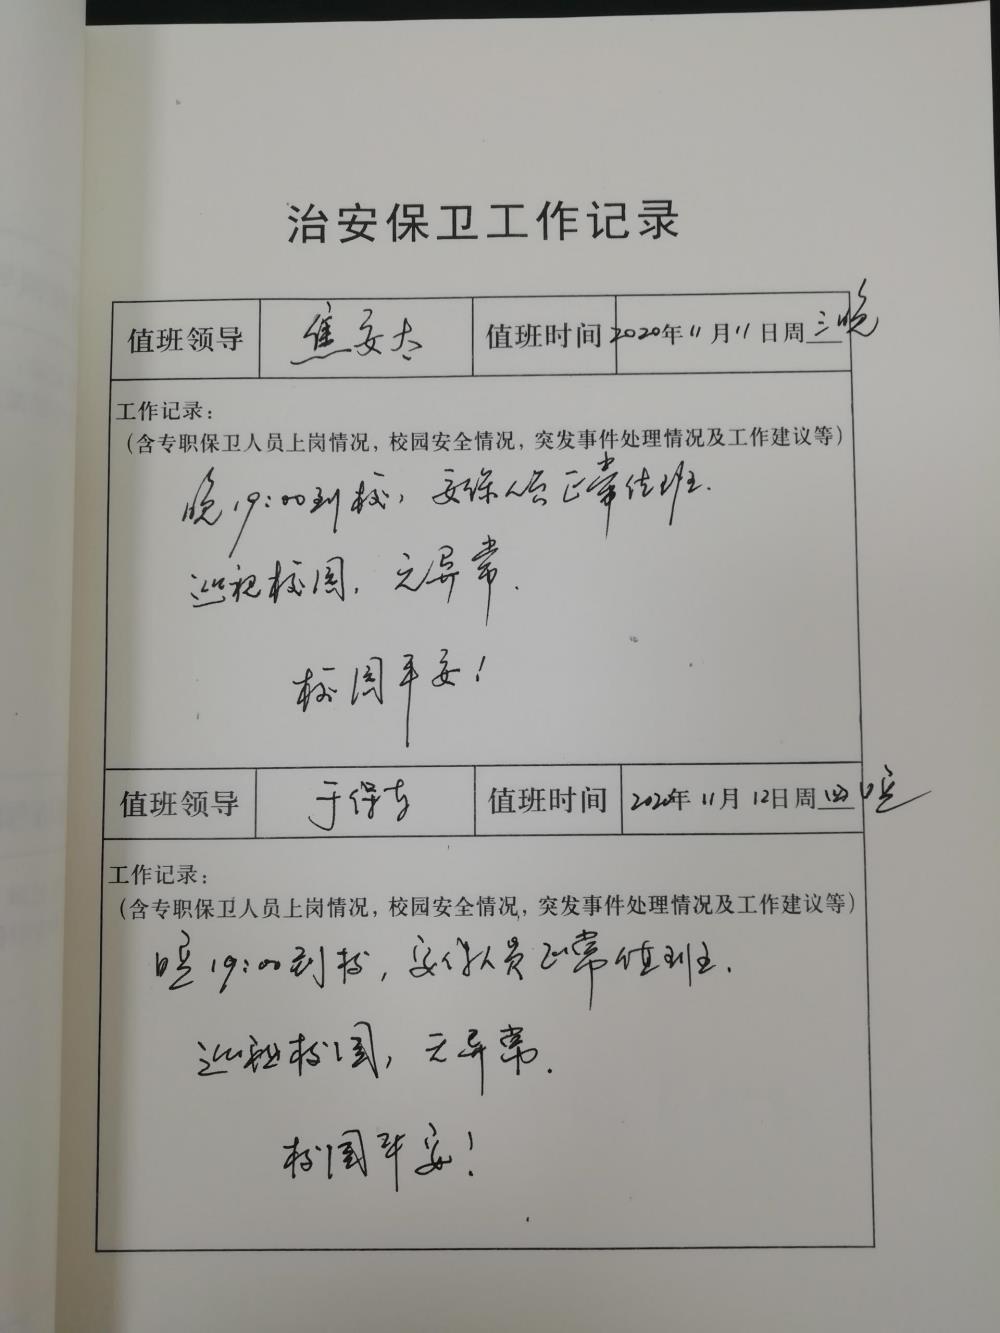 治安保卫工作记录
值班领导 焦安太 值班时间 2020年11月11日周三晚
工作记录：
（含专职保卫人员上岗情况，校园安全情况，突发事件处理情况及工作建议等）
晚19:00到校，安保人员正常值班.
巡视校园，无异常.
校园平安！
值班领导 于保 值班时间 2020年11月12日周四晚
工作记录：
（含专职保卫人员上岗情况，校园安全情况，突发事件处理情况及工作建议等）
晚19:00到校，安保人员正常值班.
巡视校园，无异常.
校园平安！